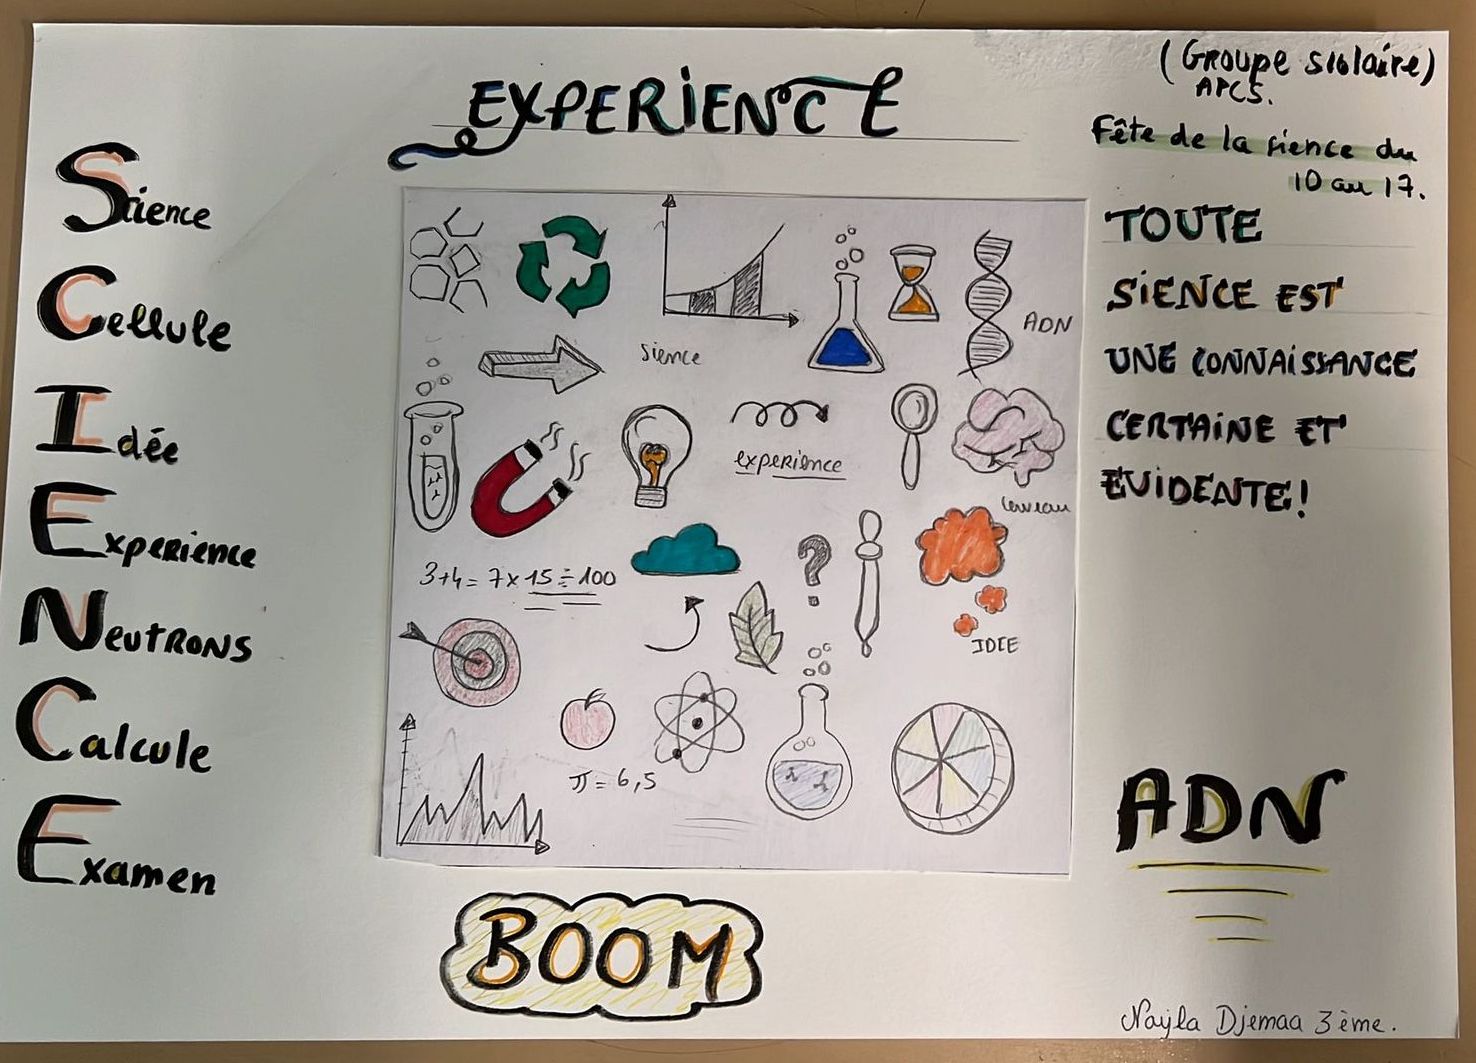 EXPERIENCE
(Groupe scolaire)
APCS.
Fête de la sience du
10 au 17.
Science
Cellule
Idée
Experience
Neutrons
Calcule
Examen
ADN
sience
experience
cerveau
3+4= 7x15÷100
?
IDEE
π= 6,5
TOUTE
SIENCE EST
UNE CONNAISSANCE
CERTAINE ET
EVIDENTE!
ADN
BOOM
Nayla Djemaa 3ème.